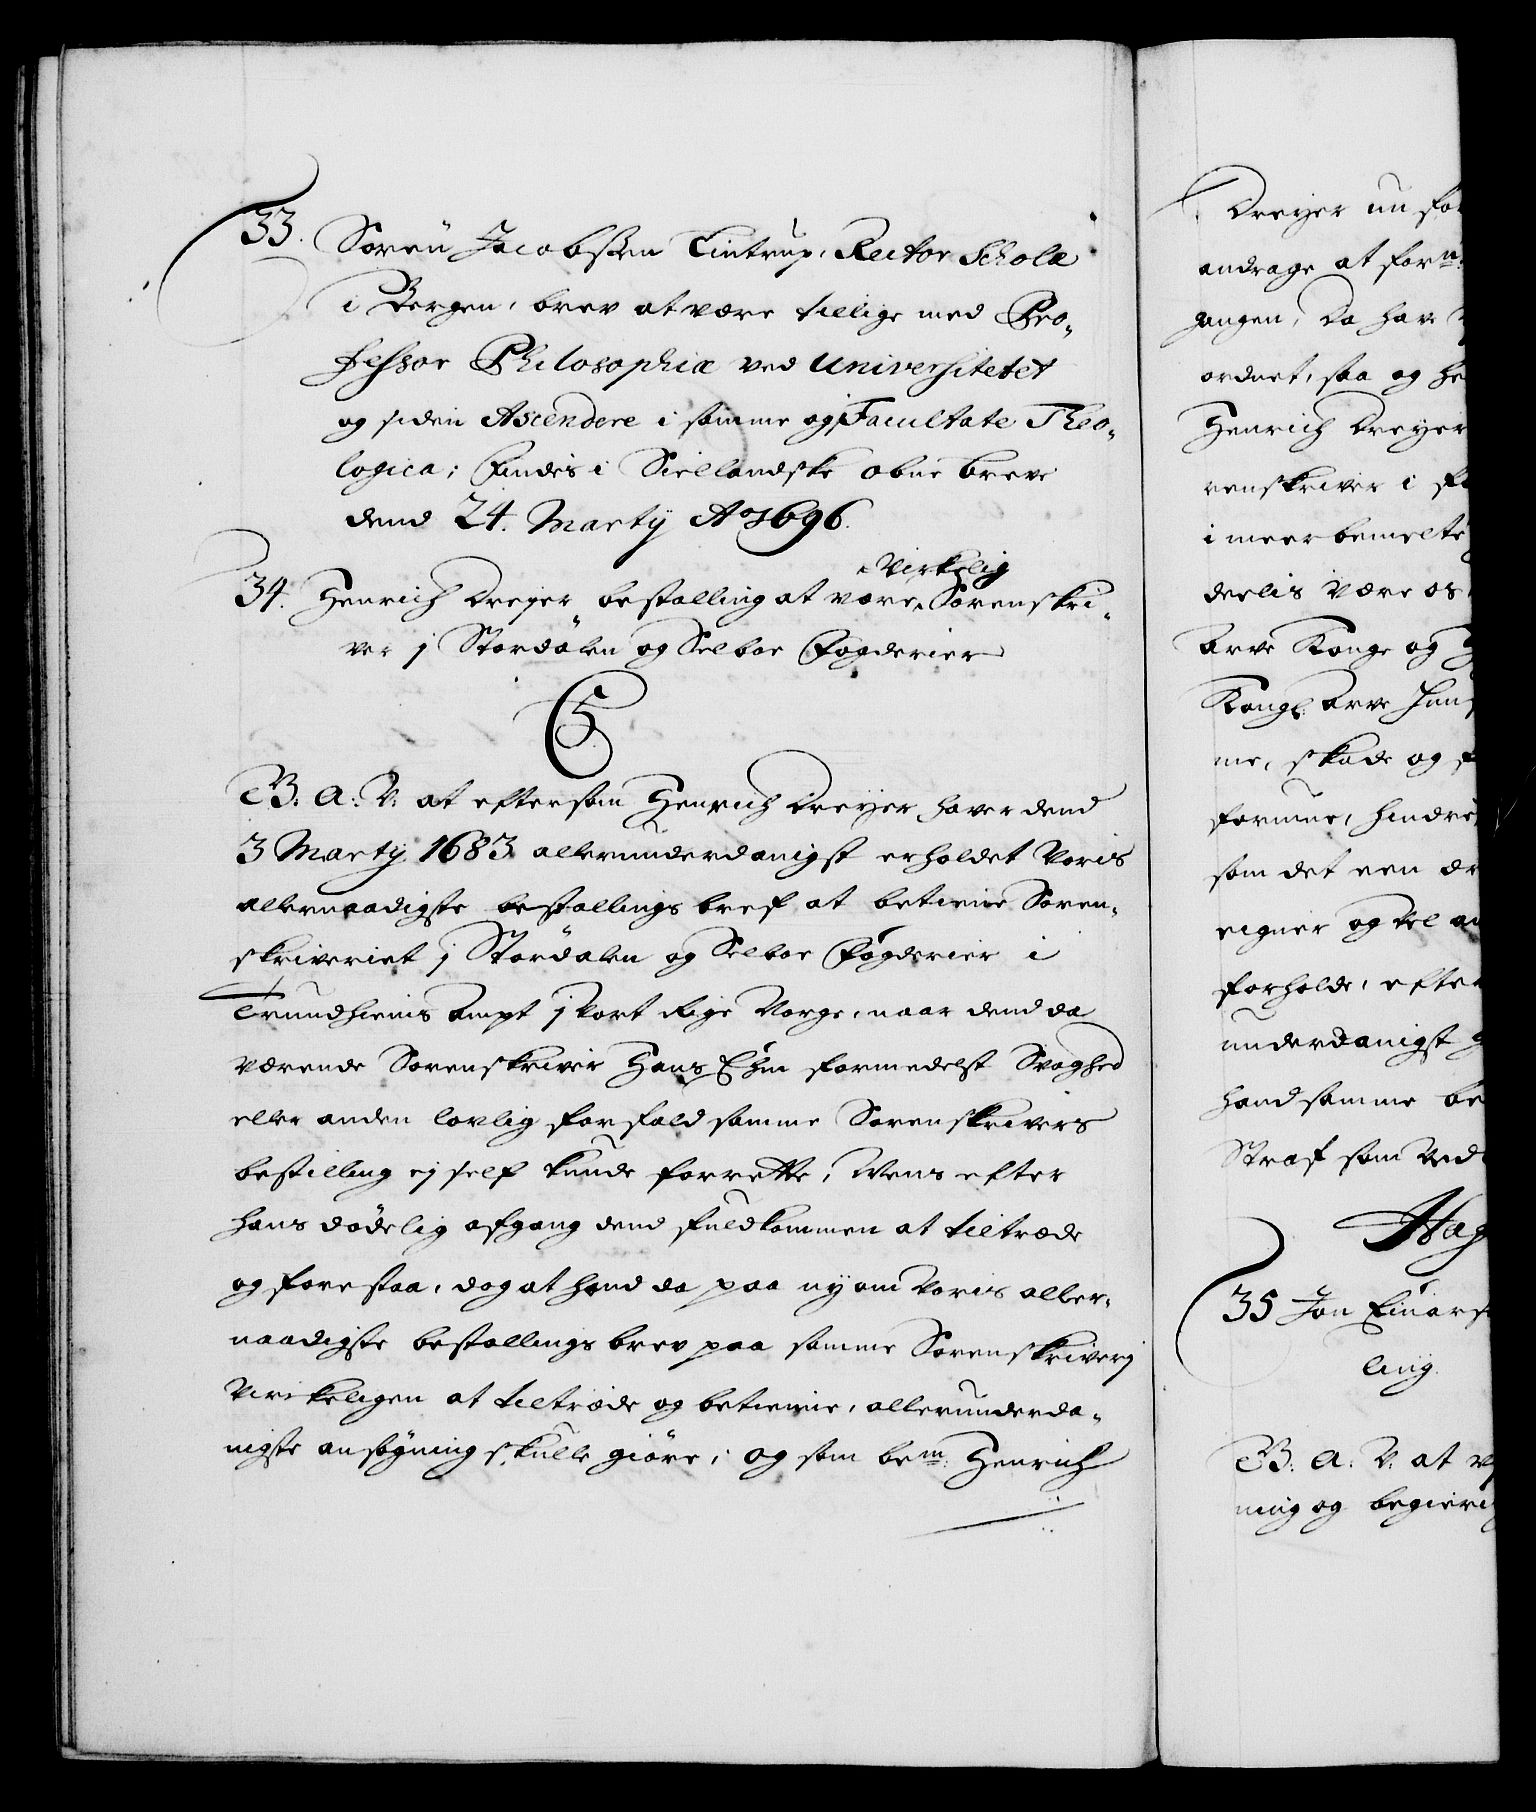 33. Søren Jacobsen Lintrup, Rector Scholæ
i Bergen, brev at være tillige med Pro-
fessor Philosophiæ ved Universitetet
og siden Ascendere i samme og Facultate Theo-
logica; Findes i Siellandske obne breve
dend 24. Marty Ao 1696.
34. Henrich Dreyer bestalling at være Virkelig Sorenskri-
ver j Stördalen og Selboe Fogderier
C5
B: A: V: at eftersom Henrich Dreyer haver dend
3 Marty 1683 allerunderdanigst erholdet Voris
allernaadigste bestallings bref at betiene Soren-
skriveriet j Stördalen og Selboe Fogderier i
Trundhiems Ampt j Vort Rige Norge, naar dend da
værende Sorenskriver Hans formedelst Svaghed
eller anden lovlig forfald samme Sorenskrivers
bestilling ej self kunde forrette, Mens efter
hans dødelig afgang dend fuldkommen at tiltræde
og forestaa, dog at hand da paa ny om Voris aller-
naadigste bestallings brev paa samme Sorenskriverj
Virkeligen at tiltræde og betiene, allerunderda-
nigste ansøgning skulle giöre; og som bem: Henrich
Dreyer nu for
andrage at forn:
gangen, Da have
ordnet, saa og he
Henrich Dreyer
renskriver i
i meerbemelte
deelis være os
Arve Konge og
Kongl: Arve Huus
me, skade og
forrune, hindre
som det een
eigner og vel an
forholde, efter
underdanigst
hand samme be
Straf som ved
Hag
35 Jon Einars
ling.
B: A: V: at
ning og begiering